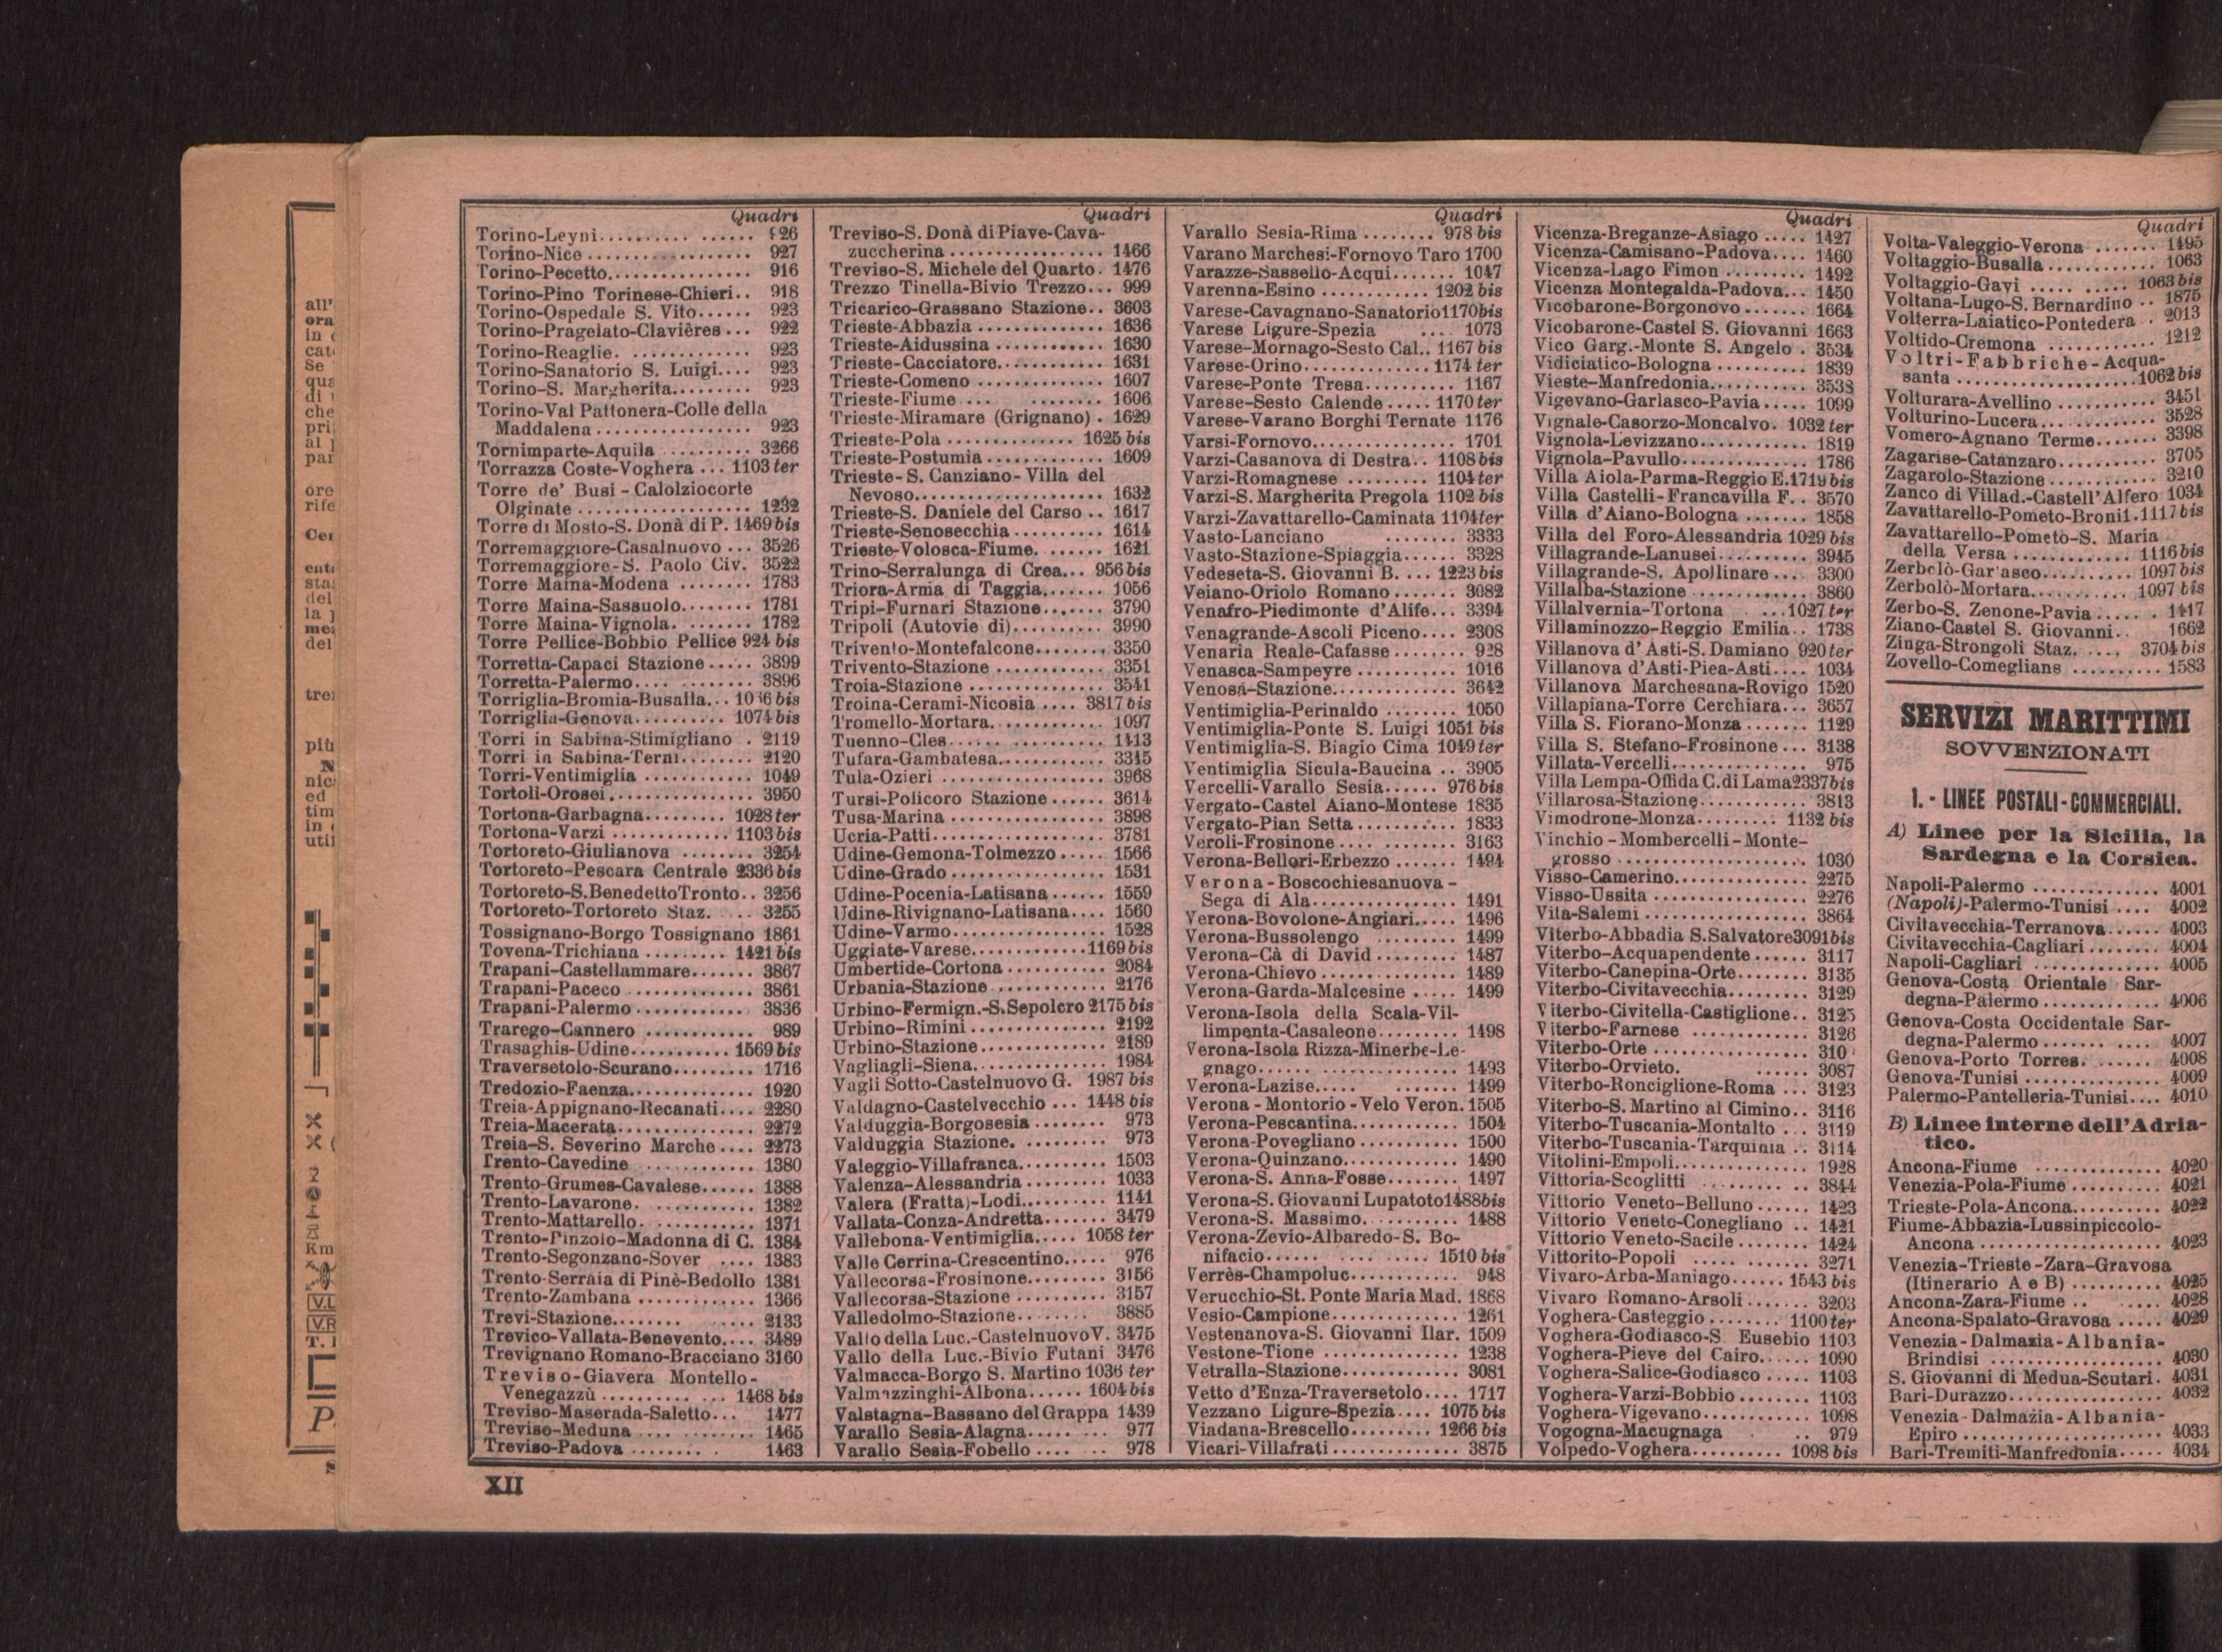 Quadri
Torino-Leyni
Torino-Nice 927
Torino-Pecetto 916
Torino-Pino Torinese-Chieri 918
Torino-Ospedale S. Vito 923
Torino-Pragelato-Clavières 922
Torino-Reaglie 923
Torino-Sanatorio S. Luigi 923
Torino-S. Margherita 923
Torino-Val Pattonera-Colle della
Maddalena 923
Tornimparte-Aquila 3266
Torrazza Coste-Voghera 1103 ter
Torre de' Busi - Calolziocorte
Olginate 1232
Torre di Mosto-S. Donà di P. 1469 bis
Torremaggiore-Casalnuovo 3526
Torremaggiore-S. Paolo Civ. 3522
Torre Maina-Modena 1783
Torre Maina-Sassuolo 1781
Torre Maina-Vignola 1782
Torre Pellice-Bobbio Pellice 924 bis
Torretta-Capaci Stazione 3899
Torretta-Palermo 3896
Torriglia-Bromia-Busalla
Torriglia-Genova 1074 bis
Torri in Sabina-Stimigliano 2119
Torri in Sabina-Terni 2120
Torri-Ventimiglia 1049
Tortoli-Orosei 3950
Tortona-Garbagna 1028 ter
Tortona-Varzi 1103 bis
Tortoreto-Giulianova 3254
Tortoreto-Pescara Centrale 2336 bis
Tortoreto-S.Benedetto Tronto 3256
Tortoreto-Tortoreto Staz. 3255
Tossignano-Borgo Tossignano 1861
Tovena-Trichiana 1421 bis
Trapani-Castellammare 3867
Trapani-Paceco 3861
Trapani-Palermo 3836
Trarego-Cannero 989
Trasaghis-Udine 1569 bis
Traversetolo-Scurano 1716
Tredozio-Faenza 1920
Treia-Appignano-Recanati 2280
Treia-Macerata 2272
Treia-S. Severino Marche 2273
Trento-Cavedine 1380
Trento-Grumes-Cavalese 1388
Trento-Lavarone 1382
Trento-Mattarello 1371
Trento-Pinzolo-Madonna di C. 1384
Trento-Segonzano-Sover 1383
Trento-Serraia di Pinè-Bedollo 1381
Trento-Zambana 1366
Trevi-Stazione 2133
Trevico-Vallata-Benevento 3489
Trevignano Romano-Bracciano 3160
Treviso-Giavera Montello-
Venegazzù 1468 bis
Treviso-Maserada-Saletto 1477
Treviso-Meduna 1465
Treviso-Padova 1463
Quadri
Treviso-S. Donà di Piave-Cava-
zuccherina 1466
Treviso-S. Michele del Quarto 1476
Trezzo Tinella-Bivio Trezzo 999
Tricarico-Grassano Stazione 3603
Trieste-Abbazia 1636
Trieste-Aidussina 1630
Trieste-Cacciatore 1631
Trieste-Comeno 1607
Trieste-Fiume 1606
Trieste-Miramare (Grignano) 1629
Trieste-Pola 1625 bis
Trieste-Postumia 1609
Trieste-S. Canziano-Villa del
Nevoso 1632
Trieste-S. Daniele del Carso 1617
Trieste-Senosecchia 1614
Trieste-Volosca-Fiume 1621
Trino-Serralunga di Crea 956 bis
Triora-Arma di Taggia 1056
Tripi-Furnari Stazione 3790
Tripoli (Autovie di) 3990
Trivento-Montefalcone 3350
Trivento-Stazione 3351
Troia-Stazione 3541
Troina-Cerami-Nicosia 3817 bis
Tromello-Mortara 1097
Tuenno-Cles 1413
Tufara-Gambatesa 3345
Tula-Ozieri 3968
Tursi-Policoro Stazione 3614
Tusa-Marina 3898
Ucria-Patti 3781
Udine-Gemona-Tolmezzo 1566
Udine-Grado 1531
Udine-Pocenia-Latisana 1559
Udine-Rivignano-Latisana 1560
Udine-Varmo 1528
Uggiate-Varese 1169 bis
Umbertide-Cortona 2084
Urbania-Stazione 2176
Urbino-Fermign.-S.Sepolcro 2175 bis
Urbino-Rimini 2192
Urbino-Stazione 2189
Vagliagli-Siena 1984
Vagli Sotto-Castelnuovo G. 1987 bis
Valdagno-Castelvecchio 1448 bis
Valduggia-Borgosesia 973
Valduggia Stazione 973
Valeggio-Villafranca 1503
Valenza-Alessandria 1033
Valera (Fratta)-Lodi 1141
Vallata-Conza-Andretta 3479
Vallebona-Ventimiglia 1058 ter
Valle Cerrina-Crescentino 976
Vallecorsa-Frosinone 3156
Vallecorsa-Stazione 3157
Valledolmo-Stazione 3885
Vallo della Luc.-Castelnuovo V. 3475
Vallo della Luc.-Bivio Futani 3476
Valmacca-Borgo S. Martino 1036 ter
Valmazzinghi-Albona 1604 bis
Valstagna-Bassano del Grappa 1439
Varallo Sesia-Alagna 977
Varallo Sesia-Fobello 978
Quadri
Varallo Sesia-Rima 978 bis
Varano Marchesi-Fornovo Taro 1700
Varazze-Sassello-Acqui 1047
Varenna-Esino 1202 bis
Varese-Cavagnano-Sanatorio 1170 bis
Varese Ligure-Spezia 1073
Varese-Mornago-Sesto Cal. 1167 bis
Varese-Orino 1174 ter
Varese-Ponte Tresa 1167
Varese-Sesto Calende 1170 ter
Varese-Varano Borghi Ternate 1176
Varsi-Fornovo 1701
Varzi-Casanova di Destra 1108 bis
Varzi-Romagnese 1104 ter
Varzi-S. Margherita Pregola 1102 bis
Varzi-Zavattarello-Caminata 1104 ter
Vasto-Lanciano 3333
Vasto-Stazione-Spiaggia 3328
Vedeseta-S. Giovanni B. 1223 bis
Veiano-Oriolo Romano 3082
Venafro-Piedimonte d'Alife 3394
Venagrande-Ascoli Piceno 2308
Venaria Reale-Cafasse 928
Venasca-Sampeyre 1016
Venosa-Stazione 3642
Ventimiglia-Perinaldo 1050
Ventimiglia-Ponte S. Luigi 1051 bis
Ventimiglia-S. Biagio Cima 1049 ter
Ventimiglia Sicula-Baucina 3905
Vercelli-Varallo Sesia 976 bis
Vergato-Castel Aiano-Montese 1835
Vergato-Pian Setta 1833
Veroli-Frosinone 3163
Verona-Bellori-Erbezzo 1494
Verona-Boscochiesanuova-
Sega di Ala 1491
Verona-Bovolone-Angiari 1496
Verona-Bussolengo 1499
Verona-Cà di David 1487
Verona-Chievo 1489
Verona-Garda-Malcesine 1499
Verona-Isola della Scala-Vil-
limpenta-Casaleone 1498
Verona-Isola Rizza-Minerbe-Le-
gnago 1493
Verona-Lazise 1499
Verona-Montorio-Velo Veron. 1505
Verona-Pescantina 1504
Verona-Povegliano 1500
Verona-Quinzano 1490
Verona-S. Anna-Fosse 1497
Verona-S. Giovanni Lupatoto 1488 bis
Verona-S. Massimo 1488
Verona-Zevio-Albaredo-S. Bo-
nifacio 1510 bis
Verrès-Champoluc 948
Verucchio-St. Ponte Maria Mad. 1868
Vesio-Campione 1261
Vestenanova-S. Giovanni Ilar. 1509
Vestone-Tione 1238
Vetralla-Stazione 3081
Vetto d'Enza-Traversetolo 1717
Vezzano Ligure-Spezia 1075 bis
Viadana-Brescello 1266 bis
Vicari-Villafrati 3875
Quadri
Vicenza-Breganze-Asiago 1427
Vicenza-Camisano-Padova 1460
Vicenza-Lago Fimon 1492
Vicenza Montegalda-Padova 1450
Vicobarone-Borgonovo 1664
Vicobarone-Castel S. Giovanni 1663
Vico Garg.-Monte S. Angelo 3534
Vidiciatico-Bologna 1839
Vieste-Manfredonia 3538
Vigevano-Garlasco-Pavia 1099
Vignale-Casorzo-Moncalvo 1032 ter
Vignola-Levizzano 1819
Vignola-Pavullo 1786
Villa Aiola-Parma-Reggio E. 1719 bis
Villa Castelli-Francavilla F. 3570
Villa d'Aiano-Bologna 1858
Villa del Foro-Alessandria 1029 bis
Villagrande-Lanusei 3945
Villagrande-S. Apollinare 3300
Villalba-Stazione 3860
Villalvernia-Tortona 1027 ter
Villaminozzo-Reggio Emilia 1738
Villanova d'Asti-S. Damiano 920 ter
Villanova d'Asti-Piea-Asti 1034
Villanova Marchesana-Rovigo 1520
Villapiana-Torre Cerchiara 3657
Villa S. Fiorano-Monza 1129
Villa S. Stefano-Frosinone 3138
Villata-Vercelli 975
Villa Lempa-Offida C.di Lama 2337 bis
Villarosa-Stazione 3813
Vimodrone-Monza 1132 bis
Vinchio-Mombercelli-Monte-
grosso 1030
Visso-Camerino 2275
Visso-Ussita 2276
Vita-Salemi 3864
Viterbo-Abbadia S.Salvatore 3091 bis
Viterbo-Acquapendente 3117
Viterbo-Canepina-Orte 3135
Viterbo-Civitavecchia 3129
Viterbo-Civitella-Castiglione 3125
Viterbo-Farnese 3126
Viterbo-Orte
Viterbo-Orvieto 3087
Viterbo-Ronciglione-Roma 3123
Viterbo-S. Martino al Cimino 3116
Viterbo-Tuscania-Montalto 3119
Viterbo-Tuscania-Tarquinia 3114
Vitolini-Empoli 1928
Vittoria-Scoglitti 3844
Vittorio Veneto-Belluno 1423
Vittorio Veneto-Conegliano 1421
Vittorio Veneto-Sacile 1424
Vittorito-Popoli 3271
Vivaro-Arba-Maniago 1543 bis
Vivaro Romano-Arsoli 3203
Voghera-Casteggio 1100 ter
Voghera-Godiasco-S. Eusebio 1103
Voghera-Pieve del Cairo 1090
Voghera-Salice-Godiasco 1103
Voghera-Varzi-Bobbio 1103
Voghera-Vigevano 1098
Vogogna-Macugnaga 979
Volpedo-Voghera 1098 bis
Quadri
Volta-Valeggio-Verona 1495
Voltaggio-Busalla 1063
Voltaggio-Gavi 1063 bis
Voltana-Lugo-S. Bernardino 1875
Volterra-Laiatico-Pontedera 2013
Voltido-Cremona 1212
Voltri-Fabbriche-Acqua-
santa 1062 bis
Volturara-Avellino 3451
Volturino-Lucera 3528
Vomero-Agnano Terme 3398
Zagarise-Catanzaro 3705
Zagarolo-Stazione 3210
Zanco di Villad.-Castell'Alfero 1034
Zavattarello-Pometo-Broni 1117 bis
Zavattarello-Pometo-S. Maria
della Versa 1116 bis
Zerbolò-Garlasco 1097 bis
Zerbolò-Mortara 1097 bis
Zerbo-S. Zenone-Pavia 1117
Ziano-Castel S. Giovanni 1662
Zinga-Strongoli Staz. 3704 bis
Zovello-Comeglians 1583
SERVIZI MARITTIMI
SOVVENZIONATI
1. - LINEE POSTALI-COMMERCIALI.
A) Linee per la Sicilia, la
Sardegna e la Corsica.
Napoli-Palermo 4001
(Napoli)-Palermo-Tunisi 4002
Civitavecchia-Terranova 4003
Civitavecchia-Cagliari 4004
Napoli-Cagliari 4005
Genova-Costa Orientale Sar-
degna-Palermo 4006
Genova-Costa Occidentale Sar-
degna-Palermo 4007
Genova-Porto Torres 4008
Genova-Tunisi 4009
Palermo-Pantelleria-Tunisi 4010
B) Linee interne dell'Adria-
tico.
Ancona-Fiume 4020
Venezia-Pola-Fiume 4021
Trieste-Pola-Ancona 4022
Fiume-Abbazia-Lussinpiccolo-
Ancona 4023
Venezia-Trieste-Zara-Gravosa
(Itinerario A e B) 4025
Ancona-Zara-Fiume 4028
Ancona-Spalato-Gravosa 4029
Venezia-Dalmazia-Albania-
Brindisi 4030
S. Giovanni di Medua-Scutari 4031
Bari-Durazzo 4032
Venezia-Dalmazia-Albania-
Epiro 4033
Bari-Tremiti-Manfredonia 4034
XII